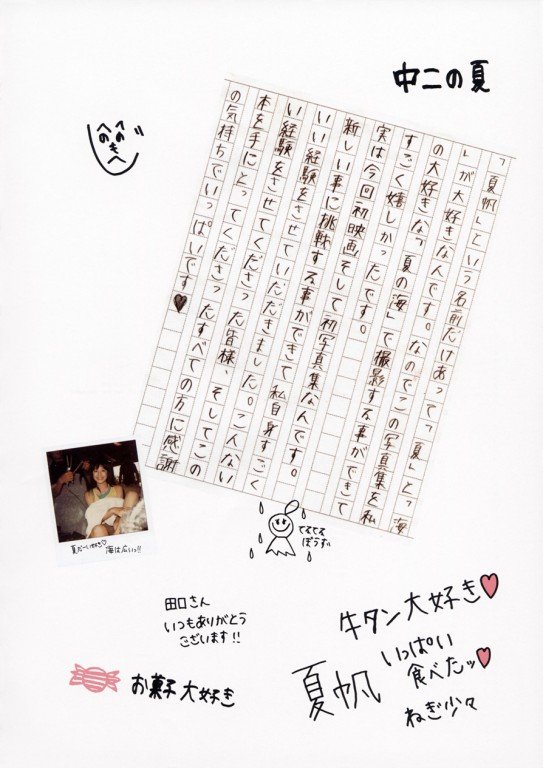 中二の夏
「夏帆」という名前だけあって「夏」と「海
」が大好きなんです。なのでこの写真集を私
の大好きな「夏の海」で撮影する事ができて
すごく嬉しかったです。
実は今回初映画そして初写真集なんです。
新しい事に挑戦する事ができて私自身すごく
いい経験をさせていただきました。こんない
い経験をさせてくださった皆様、そしてこの
本を手にとってくださったすべての方に感謝
の気持ちでいっぱいです♥
てるてる
ぼうずぃ
海は広いっ!!
田口さん
いつもありがとう
ございます!!
お菓子大好き
牛タン大好き♥
いっぱい
食べたッ♥
ねぎ少々
夏帆